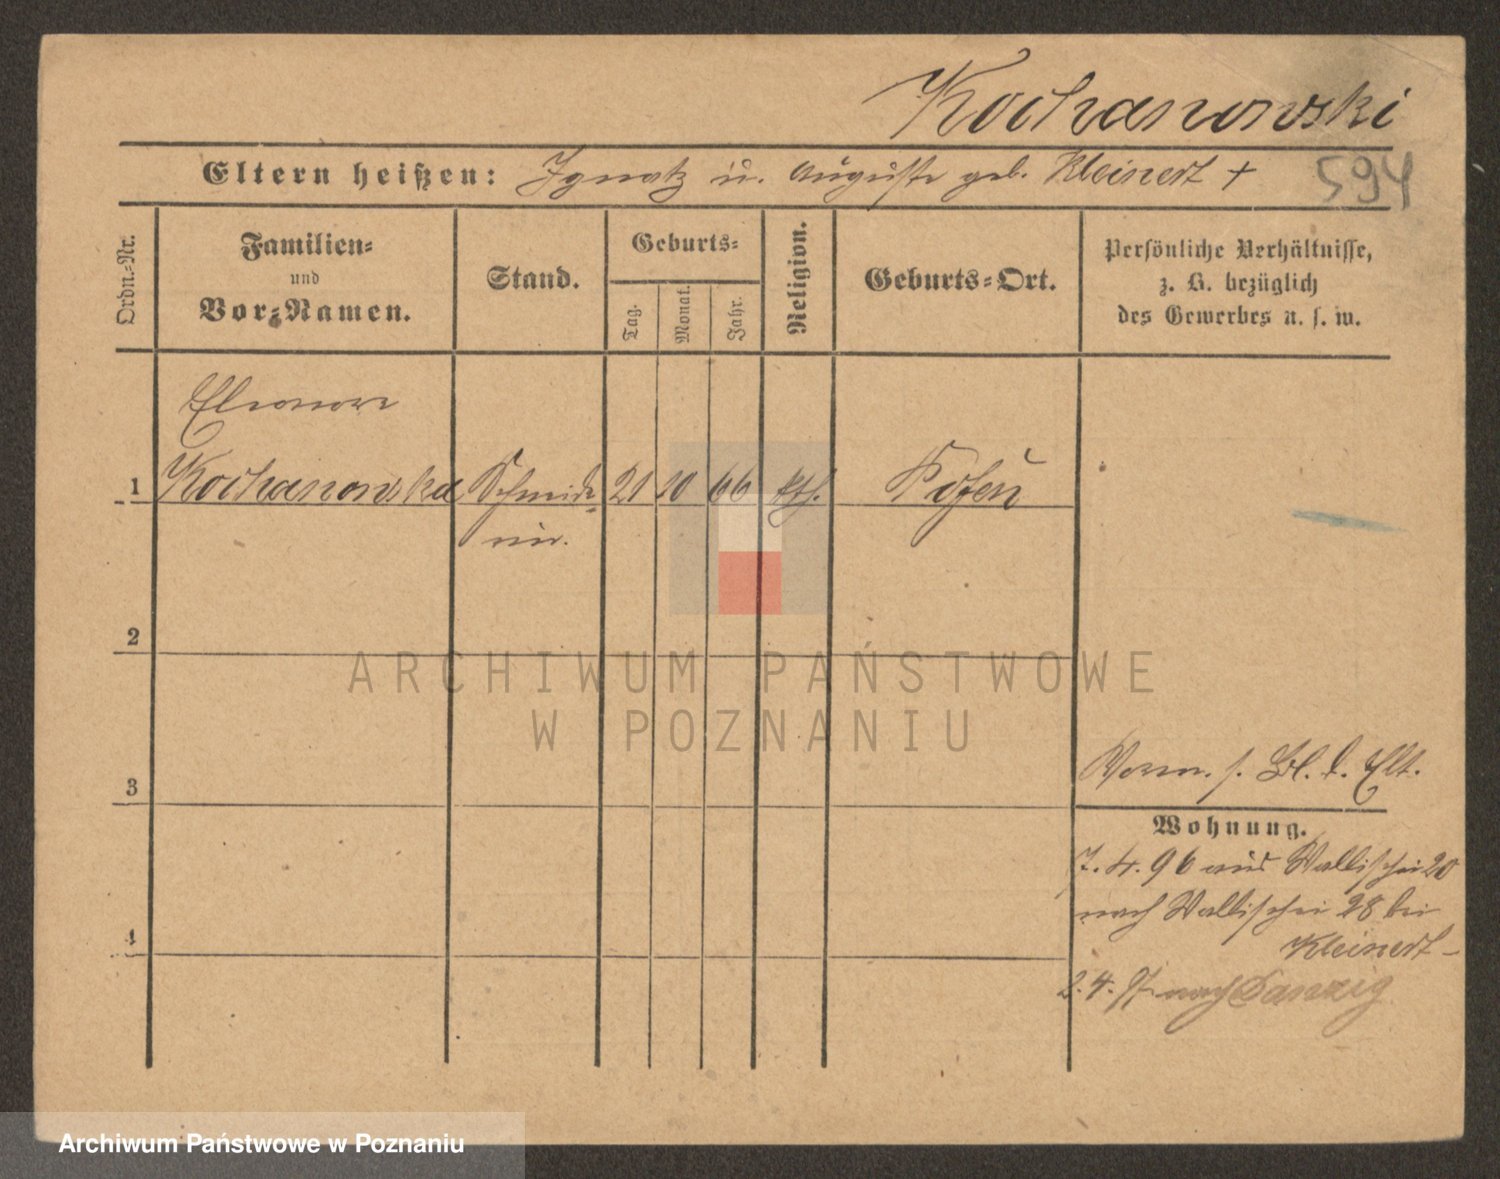 Kochanowski
Eltern heißen: Ignatz u. Auguste geb. Kleinert +
594
Ordn.-Nr.
Familien-
und
Vor-Namen.
Stand.
Geburts-
Tag.
Monat.
Jahr.
Religion.
Geburts-Ort.
Persönliche Verhältnisse,
z. B. bezüglich
des Gewerbes u. s. w.
Eleonore
1 Kochanowska Schneide- 21 10 66 kth. Posen
rin.
2
3
4
Vorm. s. Bl. d. Elt.
Wohnung.
7.4.96 aus Wallischei 20
nach Wallischei 28 bei
Kleinert
2.4.97 nach Danzig
ARCHIWUM PAŃSTWOWE
W POZNANIU
Archiwum Państwowe w Poznaniu